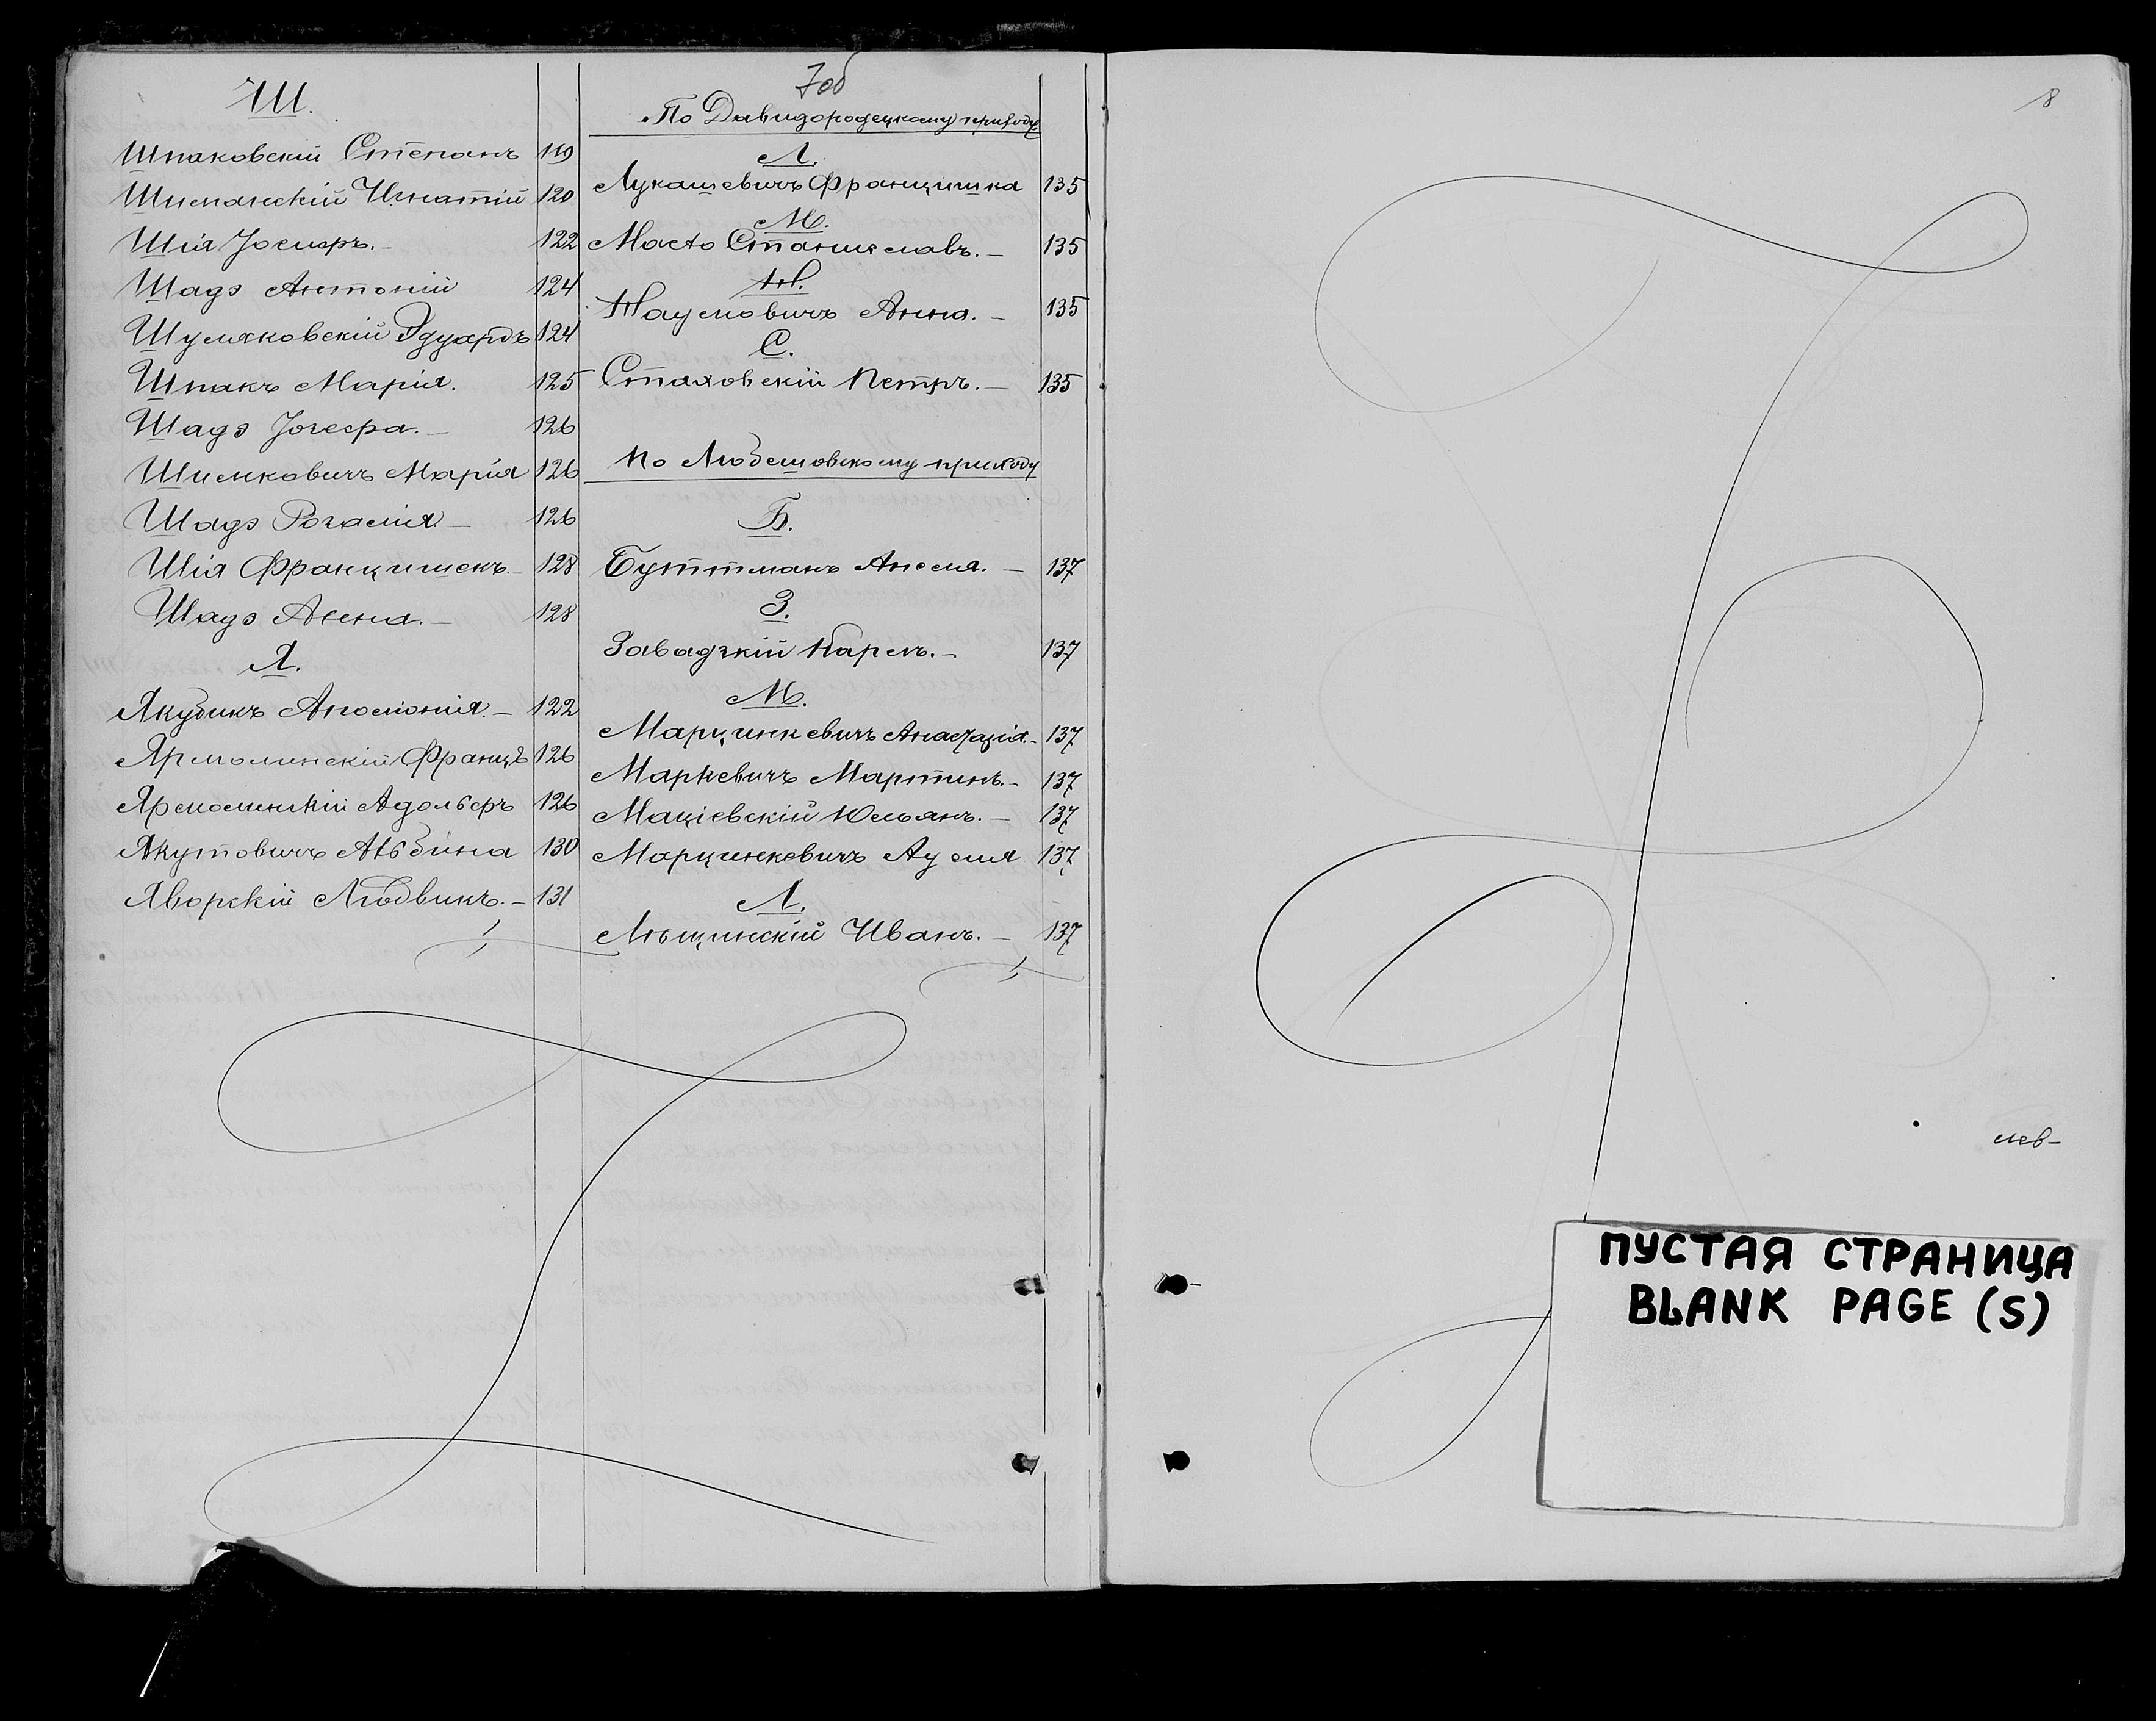 Ш.
Шпаковскій Степанъ 119
Шиманскій Игнатій 120
Шія Іосифъ.- 122
Шадэ Антоній 124
Шумяковскій Эдуардъ 124
Шпакъ Марія. 125
Шадэ Іозефа.- 126
Шимковичъ Марія 126
Шадэ Розалія- 126
Шія Францишекъ.- 128
Шадэ Анна.- 128
Я.
Якубикъ Аполонія.- 122
Ярмолинскій Францъ 126
Ярмолинскій Адольфъ 126
Якутовичъ Альбина 130
Яворскій Людвикъ.- 131
7об
По Давидородецкому приходу
Л.
Лукашевичъ Францишка 135
М.
Масто Станиславъ.- 135
Н.
Наумовичъ Анна.- 135
С.
Стаховскій Петръ.- 135
По Любешовскому приходу
Б.
Буттманъ Анеля.- 137
З.
Завадзкій Карлъ.- 137
М.
Марцинкевичъ Анастазія.- 137
Маркевичъ Мартинъ.- 137
Маціевскій Юльянъ.- 137
Марцинкевичъ 137
Л.
Лещинскій Иванъ.- 137
8
ПУСТАЯ СТРАНИЦА
BLANK PAGE (S)